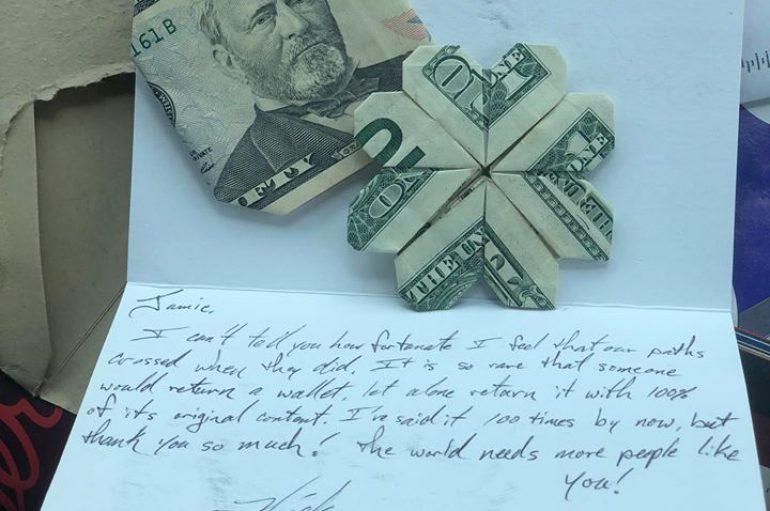 161 B
ONE
ONE
THE UN
Jamie,
I can't tell you how fortunate I feel that our paths
crossed when they did. It is so rare that someone
would return a wallet, let alone return it with 100%
of its original content. I've said it 100 times by now, but
thank you so much! The world needs more people like
you!